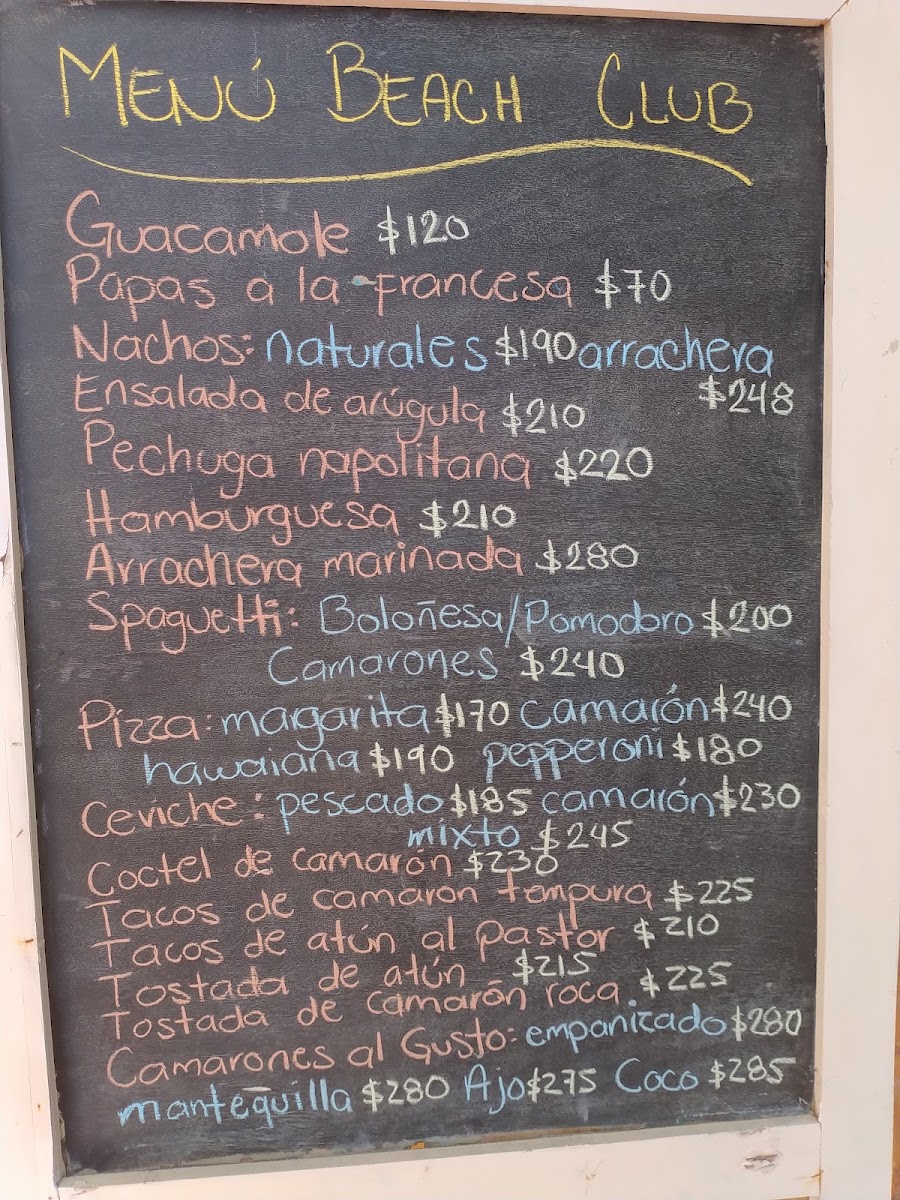 MENÚ BEACH CLUB
Guacamole $120
Papas a la francesa $70
Nachos: naturales $190 arrachera
$248
Ensalada de arúgula $210
Pechuga napolitana $220
Hamburguesa $210
Arrachera marinada $280
Spaguetti: Boloñesa/Pomodoro $200
Camarones $240
Pizza: margarita $170 camarón $240
hawaiana $190 pepperoni $180
Ceviche: pescado $185 camarón $230
mixto $245
Coctel de camarón $230
Tacos de camarón tempura $225
Tacos de atún al pastor $210
Tostada de atún $215
Tostada de camarón roca $225
Camarones al Gusto: empanizado $280
mantequilla $280 Ajo $275 Coco $285